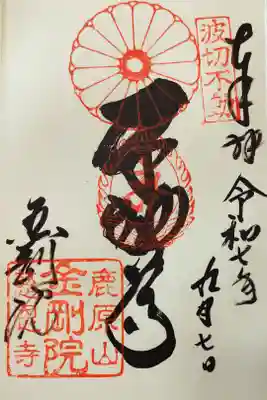 奉拝
令和七年
九月七日
波切不動
不動尊
金剛院
鹿原山
金剛院
慈恩寺